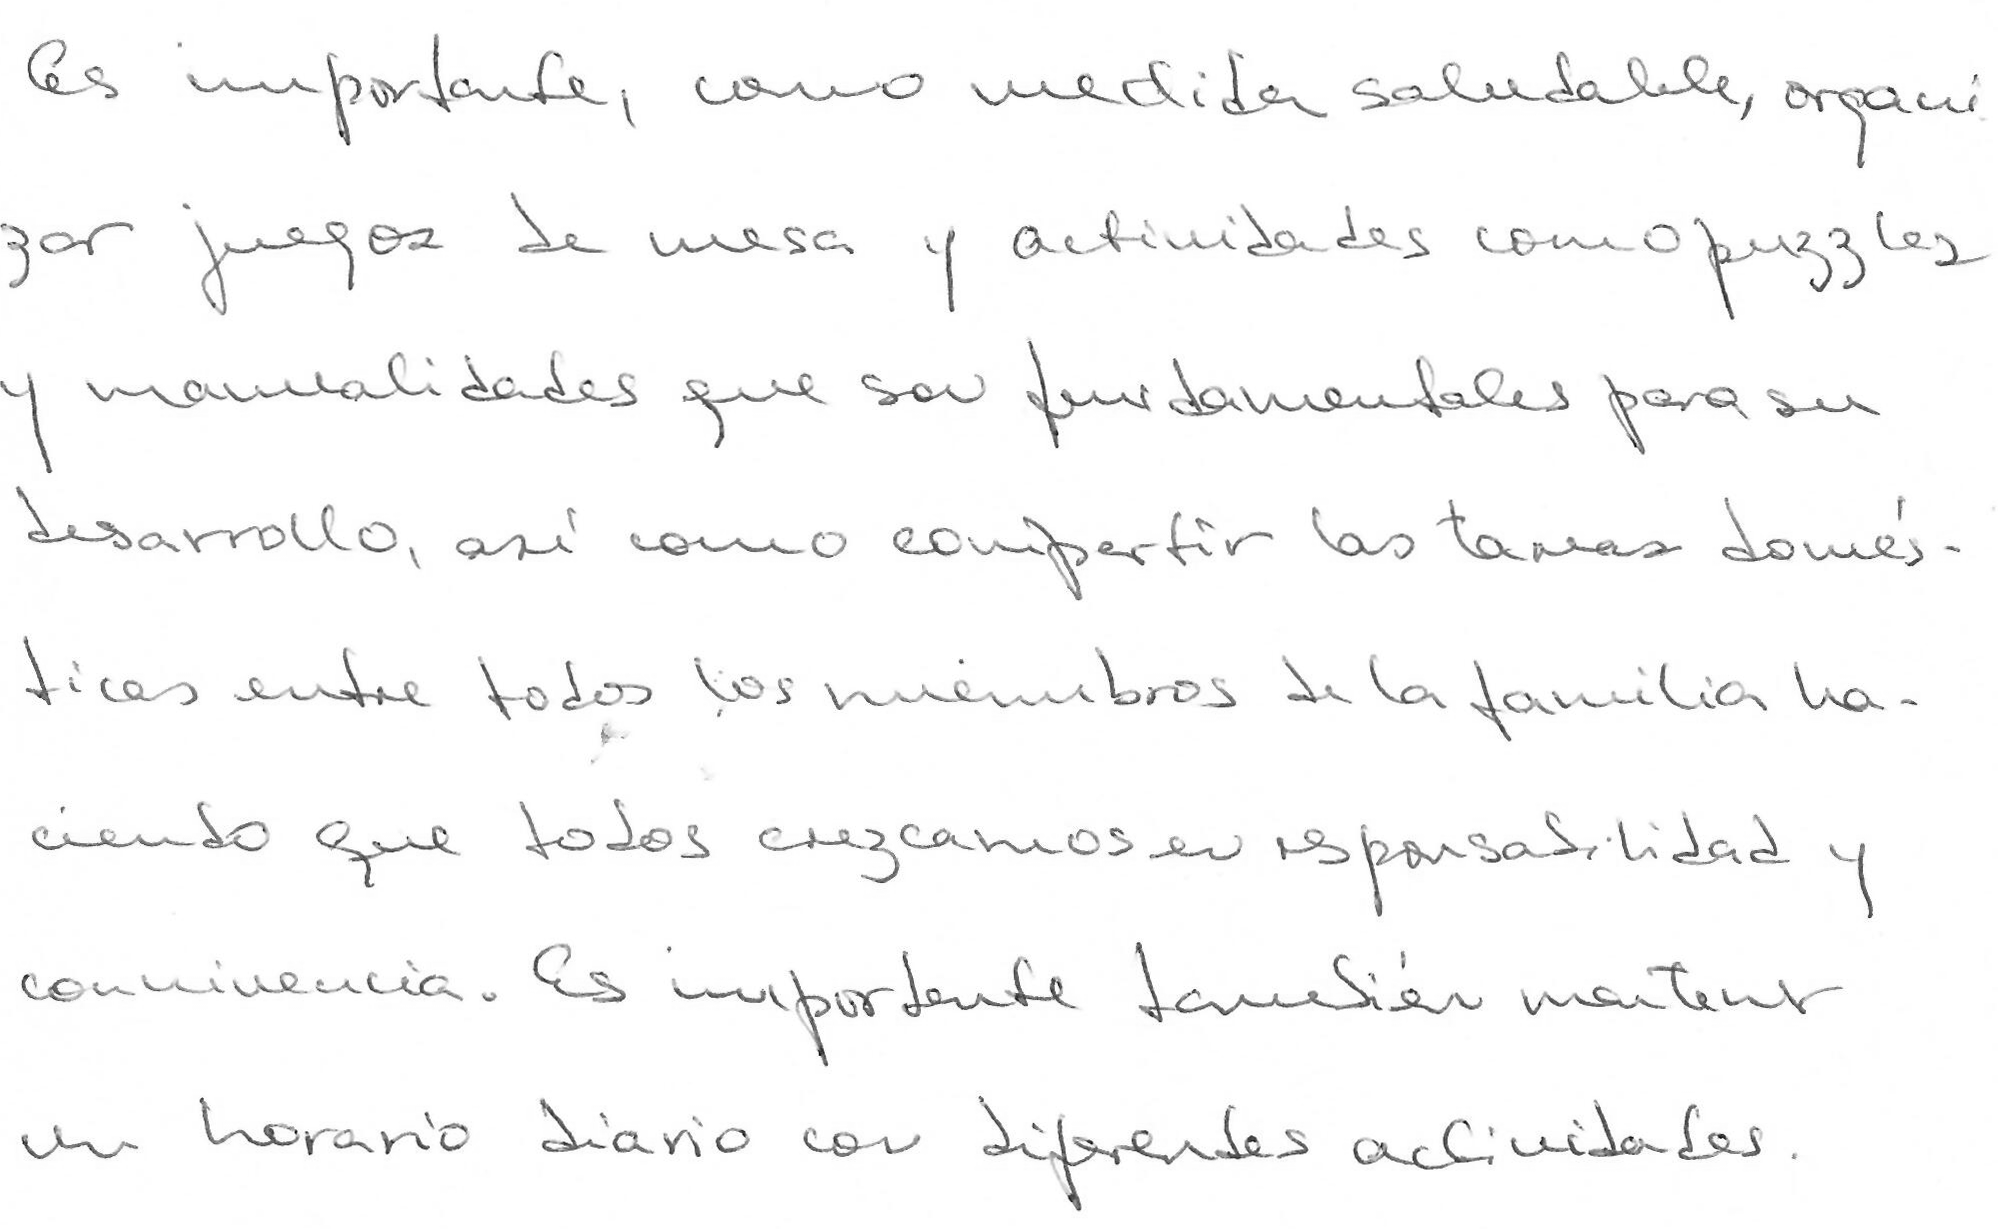 Es importante, como medida saludable, organi
zar juegos de mesa y actividades como puzzles
y manualidades que son fundamentales para su
desarrollo, así como compartir las tareas domés-
ticas entre todos los miembros de la familia ha-
ciendo que todos crezcamos en responsabilidad y
convivencia. Es importante también mantener
un horario diario con diferentes actividades.